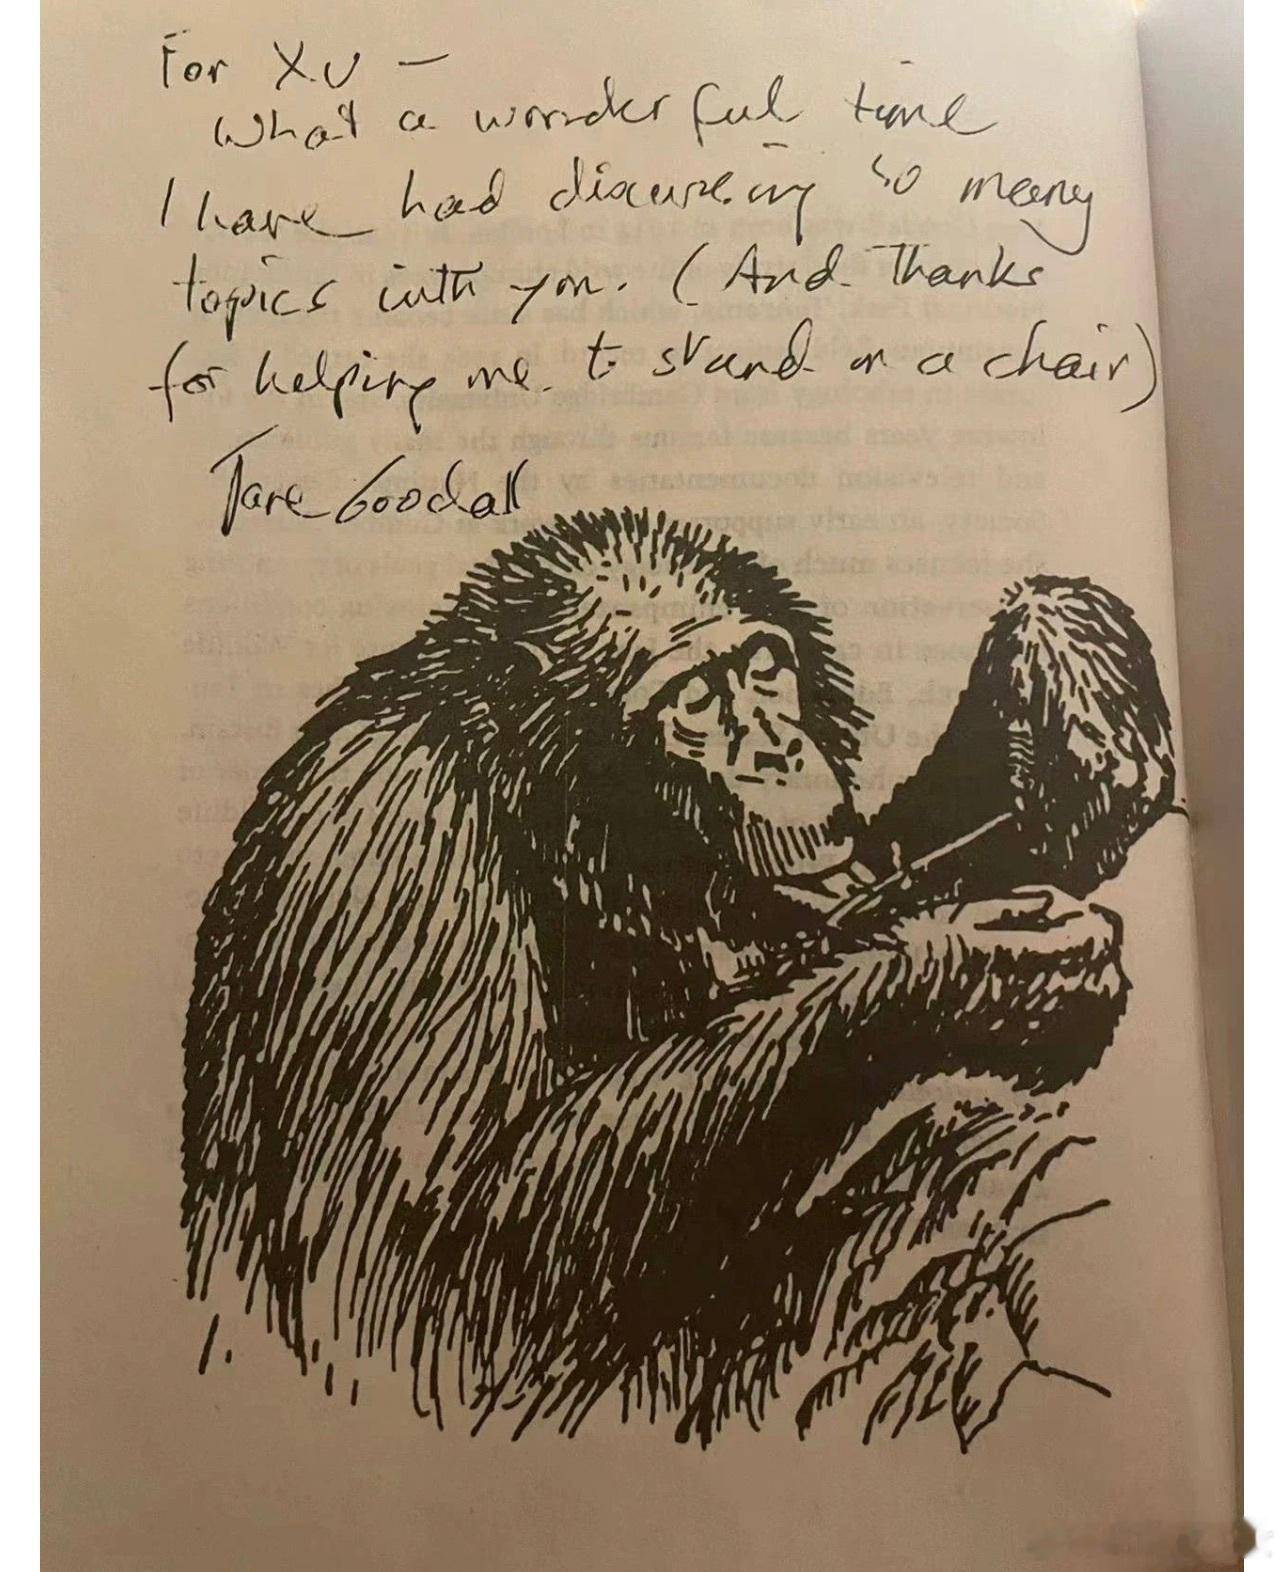 For XU —
What a wonderful time
I have had discussing so many
topics with you. (And Thanks
for helping me to stand on a chair)
Jane Goodall